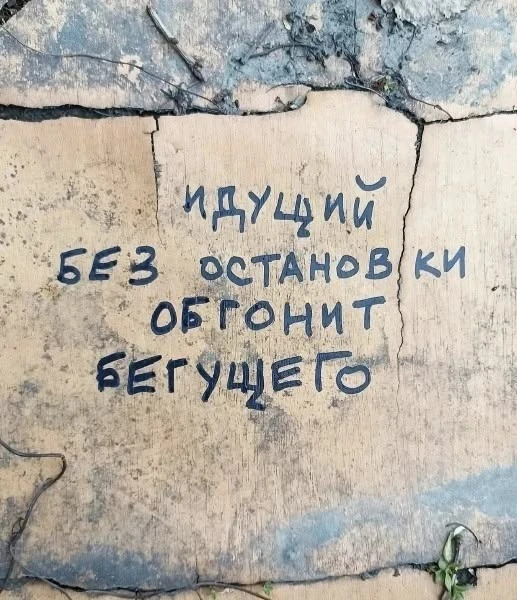 ИДУЩИЙ
БЕЗ ОСТАНОВКИ
ОБГОНИТ
БЕГУЩЕГО